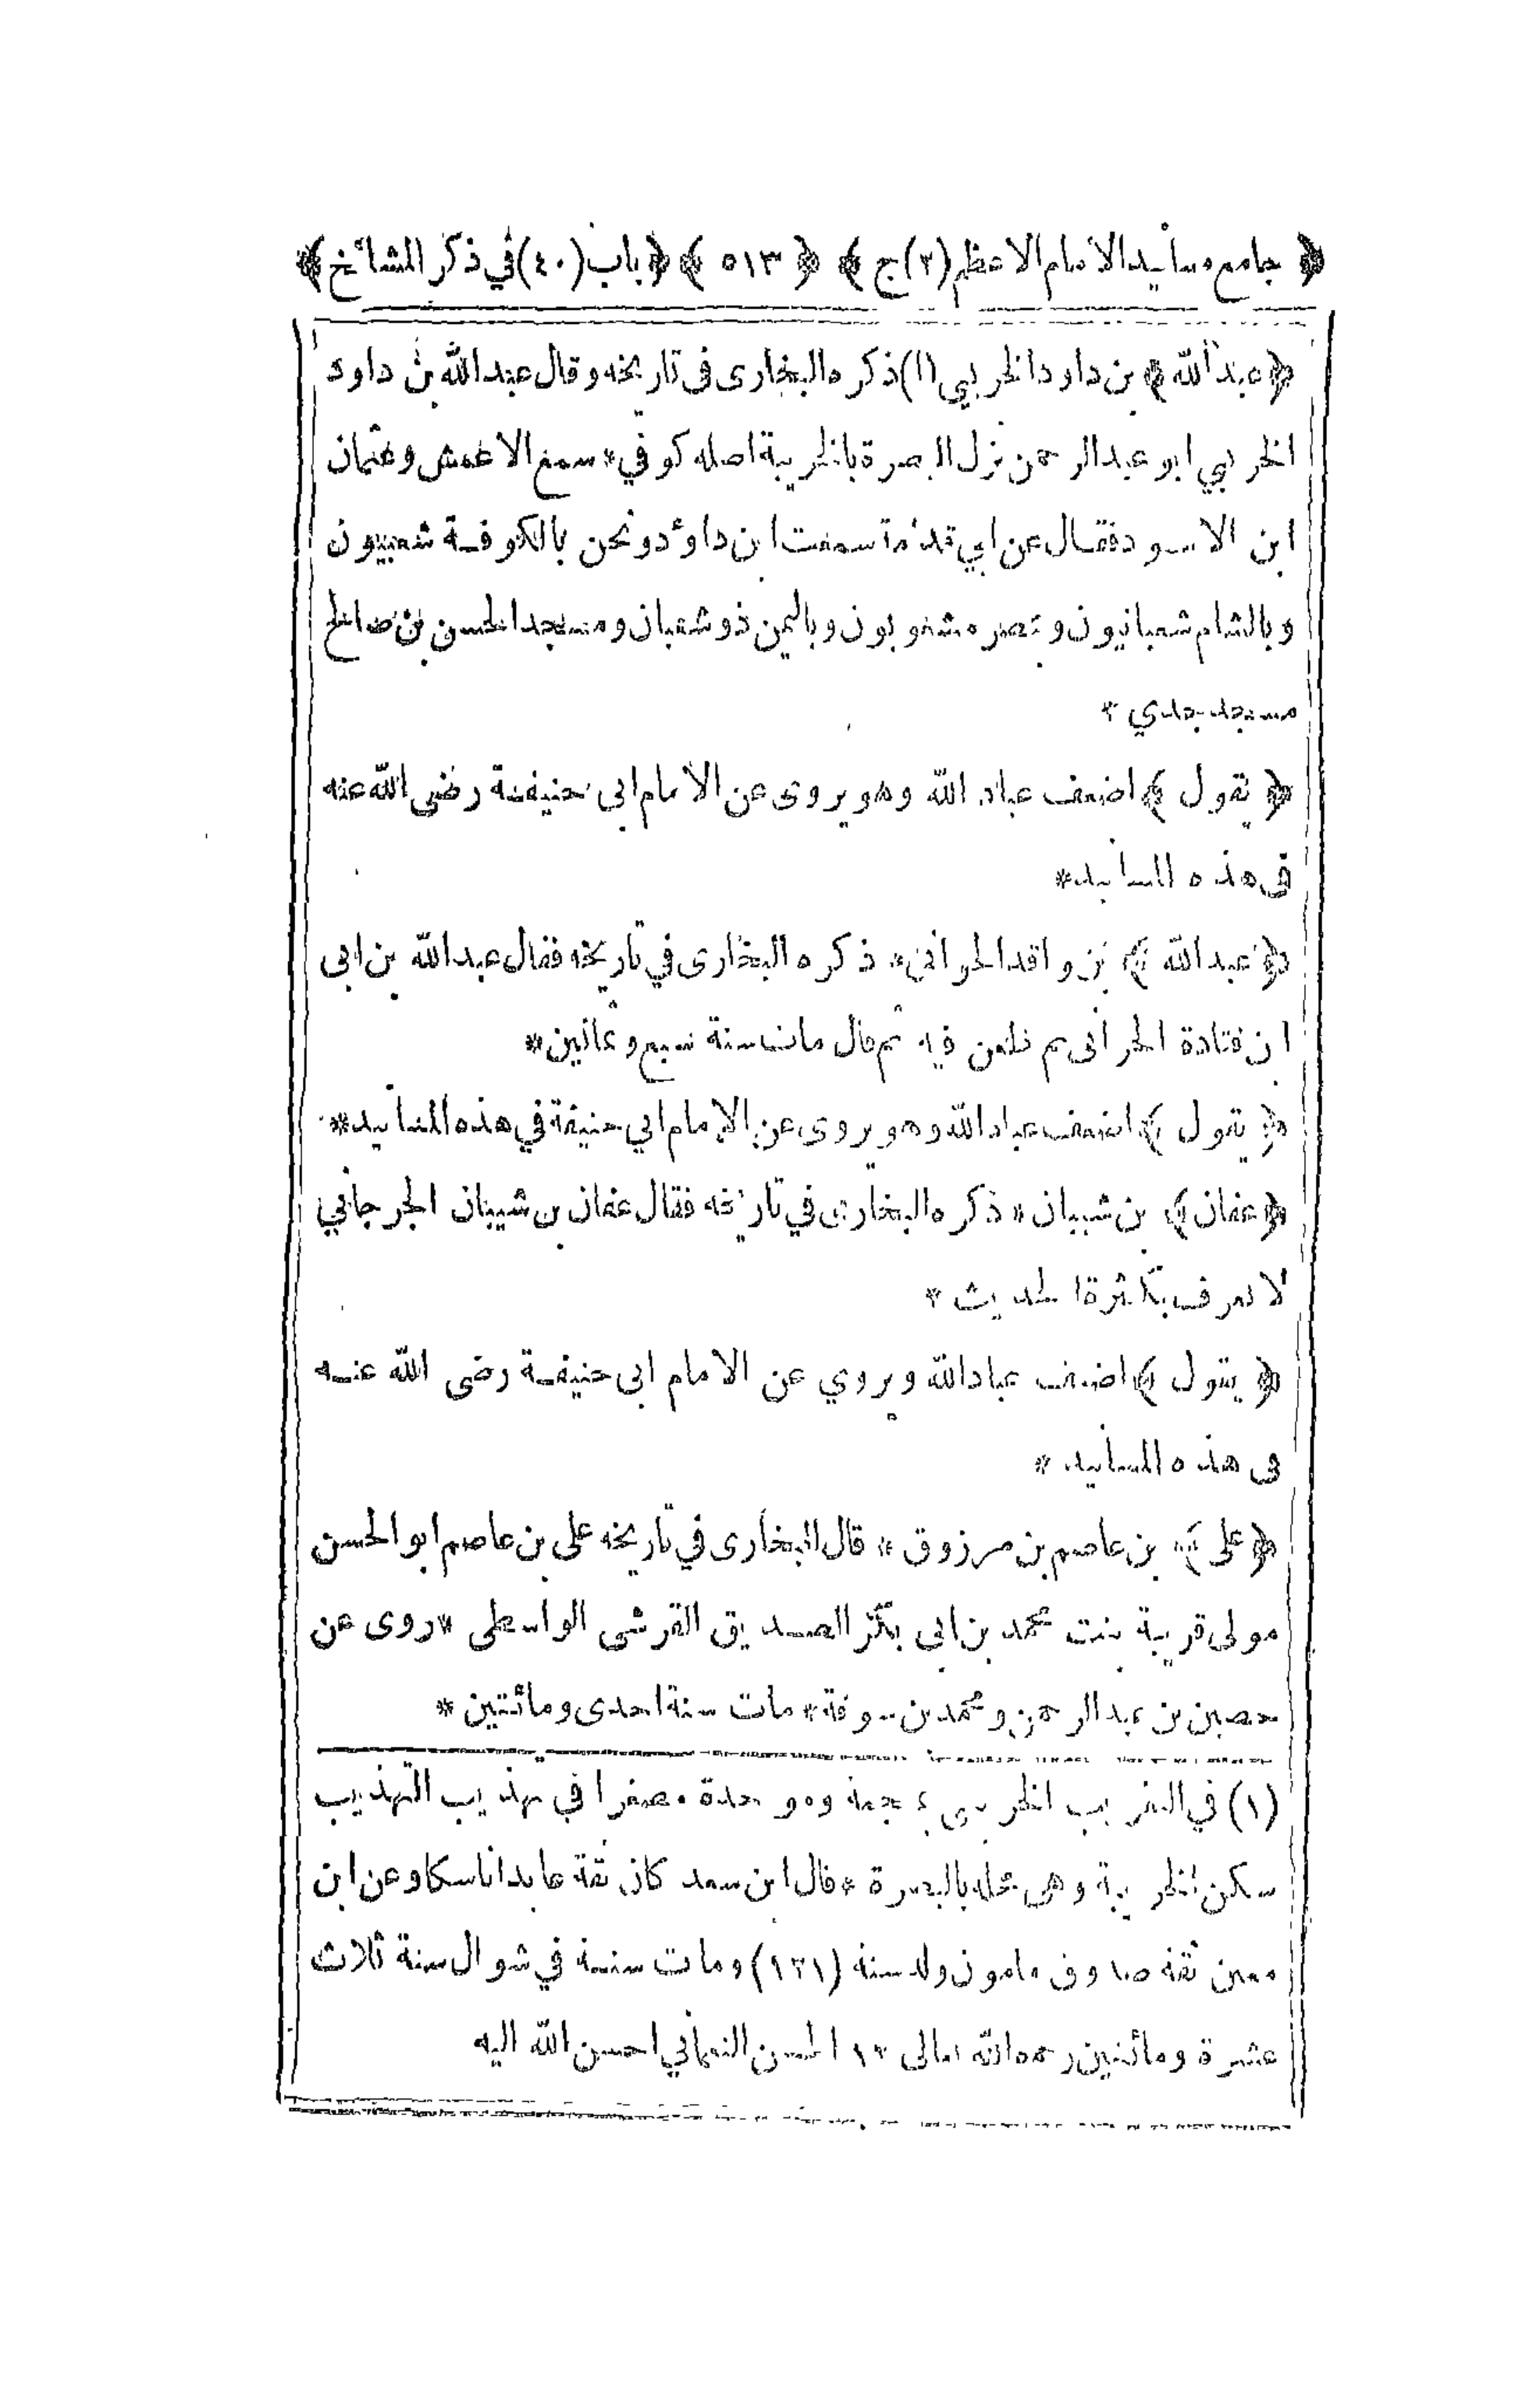 ﴿ جامع مسانيد الامام الاعظم (٢) ج ﴾ ﴿ ٥١٣ ﴾ ﴿ باب (٤٠) في ذكر المشائخ ﴾
﴿ عبدالله ﴾ بن داود الخريبي (١) ذكره البخارى فى تاريخه وقال عبدالله بن داود
الخريبي ابو عبدالرحمن نزل البصرة بالخريبة اصله كوفي * سمع الاعمش وعثمان
ابن الاسود فقال عن ابي قدامة سمعت ابن داؤد ونحن بالكوفة شعبيون
وبالشام شعبانيون وبمصر مشعوبون وباليمن ذو شعبان ومسجد الحسن بن صالح
مسجد جدي *
﴿ يقول ﴾ اضعف عباد الله وهو يروى عن الامام ابى حنيفة رضى الله عنه
فى هذه المسانيد *
﴿ عبدالله ﴾ بن واقد الحرانى * ذكره البخارى في تاريخه فقال عبدالله بن ابى
ان قتادة الحرانى ثم قال مات سنة سبع وثمانين *
﴿ يقول ﴾ اضعف عباد الله وهو يروى عن الامام ابي حنيفة في هذه المسانيد *
﴿ عفان ﴾ بن شيبان * ذكره البخارى في تاريخه فقال عفان بن شيبان الجرجاني
لا يعرف بكثرة الحديث *
﴿ يقول ﴾ اضعف عبادالله ويروي عن الامام ابى حنيفة رضى الله عنه
فى هذه المسانيد *
﴿ على ﴾ بن عاصم بن مرزوق * قال البخارى في تاريخه على بن عاصم ابو الحسن
مولى قريبة بنت محمد بن ابى بكر الصديق القرشى الواسطى * روى عن
حصين بن عبدالرحمن ومحمد بن سوقة * مات سنة احدى ومائتين *
(١) في التقريب الخريبى بمعجمة وموحدة مصغرا في تهذيب التهذيب
سكن الخريبة وهى محلة بالبصرة * قال ابن سعد كان ثقة عابدا ناسكا وعن ابن
معين ثقة صدوق مامون ولد سنة (١٢١) ومات سنة في شوال سنة ثلاث
عشرة ومائتين رحمه الله تعالى ١٢ الحسن النعماني احسن الله اليه